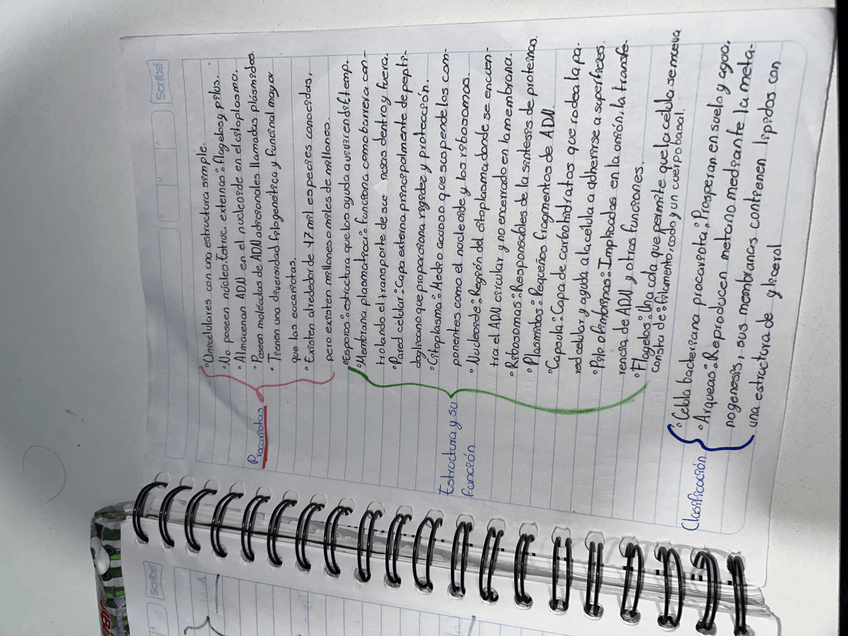 Scribe
Procariotas
° Unicelulares con una estructura simple.
° No poseen núcleo. Estruc. externas: Flagelos y pilis.
° Almacenan ADN en el nucleoide en el citoplasma.
° Poseen moléculas de ADN adicionales llamadas plásmidos
° Tienen una diversidad filogenética y funcional mayor
que las eucariotas.
° Existen alrededor de 17 mil especies conocidas,
pero existen millones o miles de millones
Estructura y su
función
°Esporas: estructura que los ayuda a vivir en dif. temp.
°Membrana plasmatica: funciona como barrera con-
trolando el transporte de sus dentro y fuera.
°Pared celular: Capa externa principalmente de pepti-
doglicano que proporciona rigidez y protección.
°Citoplasma: Medio acuoso que suspende los com-
ponentes como el nucleoide y los ribosomas.
°Nucleoide: Región del citoplasma donde se encuen-
tra el ADN circular y no encerrado en la membrana.
°Ribosomas: Responsables de la síntesis de proteínas.
°Plasmidos: Pequeños fragmentos de ADN.
°Capsula: Capa de carbohidratos que rodea la pa-
red celular y ayuda a la celula a adherirse a superficies.
°Pili o fimbrias: Implicadas en la unión, la transfe-
rencia de ADN y otras funciones.
°Flagelos: Una cola que permite que la celula se mueva
consta de: filamento, codo y un cuerpo basal.
Clasificación
°Celula bacteriana procariota: Prosperan en suelo y agua,
°Arqueas: Reproducen metano mediante la meta-
nogenesis, sus membranas contienen lípidos con
una estructura de glicerol
Scribe